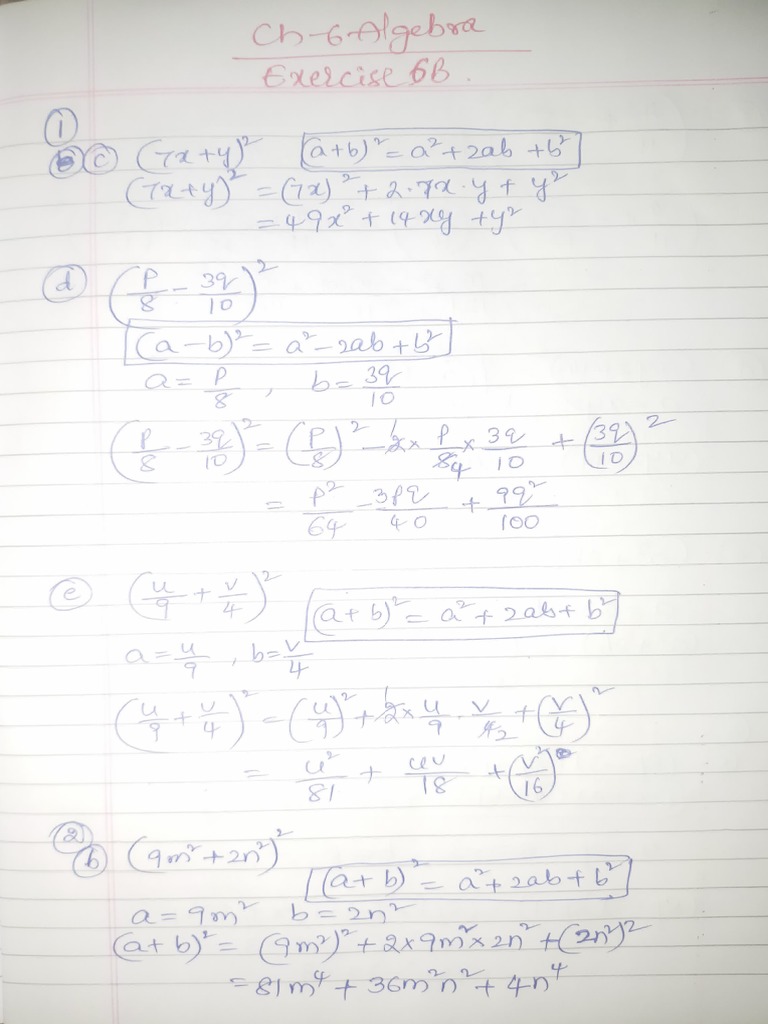 Ch-6 Algebra
Exercise 6B.
①
ⓒ (7x+y)² (a+b)² = a² + 2ab + b²
(7x+y)² = (7x)² + 2·7x·y + y²
= 49x² + 14xy + y²
ⓓ (p/8 - 3q/10)²
(a-b)² = a² - 2ab + b²
a = p/8 , b = 3q/10
(p/8 - 3q/10)² = (p/8)² - 2 × p/8 × 3q/10 + (3q/10)²
= p²/64 - 3pq/40 + 9q²/100
ⓔ (u/9 + v/4)² (a+b)² = a² + 2ab + b²
a = u/9 , b = v/4
(u/9 + v/4)² = (u/9)² + 2 × u/9 · v/4 + (v/4)²
= u²/81 + uv/18 + (v²/16)
②
ⓑ (9m² + 2n²)²
(a+b)² = a² + 2ab + b²
a = 9m² b = 2n²
(a+b)² = (9m²)² + 2 × 9m² × 2n² + (2n²)²
= 81m⁴ + 36m²n² + 4n⁴